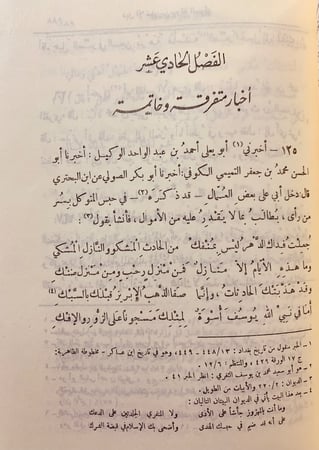 الفصل الحادي عشر
أخبار متفرقة وخاتمة
١٢٥ - أخبرني (١) أبو يعلى أحمد بن عبد الواحد الوكيل : أخبرنا أبو
الحسن محمد بن جعفر التميمي الكوفي : أخبرنا أبو بكر الصولي عن ابن البحتري
قال : دخل أبي على بعض العمال - قد ذكره (٢) - في حبس المتوكل بسر
من رأى ، يطالب بما لا يقتدر عليه من الأموال ، فأنشأ يقول (٣) :
جعلت فداك الدهر ليس بمنفك من الحادث المشكو والنازل المشكي
وما هذه الأيام إلا منازل فمن منزل رحب ومن منزل ضنك
وقد هذبتك الحادثات ، وإنما صفا الذهب الإبريز قبلك بالسبك (٤)
أما في نبي الله يوسف أسوة لمثلك مسجونا على الزور والإفك
١ - الخبر منقول من تاريخ بغداد : ٤٤٨/١٣ - ٤٤٩ ، وهو في تاريخ ابن عساكر - مخطوطة الظاهرية :
ج ١٧ الورقة ٤٢٢ ، والمنتظم : ١٢/٦ .
٢ - هو أبو سعيد محمد بن يوسف الثغري ؛ انظر الخبر ٤١ .
٣ - الديوان : ٢٢٠/٢ والأبيات من الطويل .
٤ - بعد هذا البيت يأتي في الديوان البيتان التاليان :
وما أنت بالمهزوز جأشا على الأذى ولا المتفري الجلدتين على الدعك
على أنه قد ضيم في حبسك الهدى وأضحى بك الإسلام في قبضة الشرك